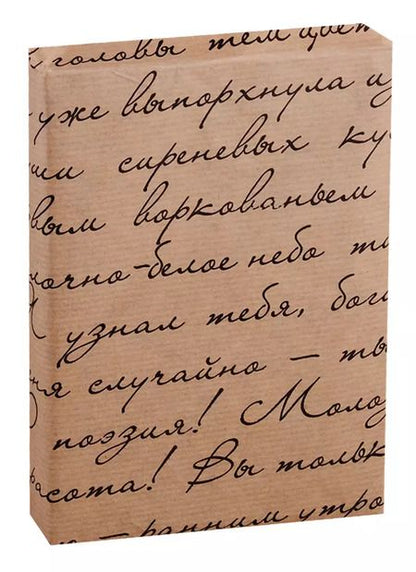 й головы тем цвет
уже выпорхнула из
ши сиреневых ку
вым воркованьем
лочно-белое небо та
Я узнал тебя, бог
ня случайно – ты
поэзия! Моло
расота! Вы тольк
– ранним утро